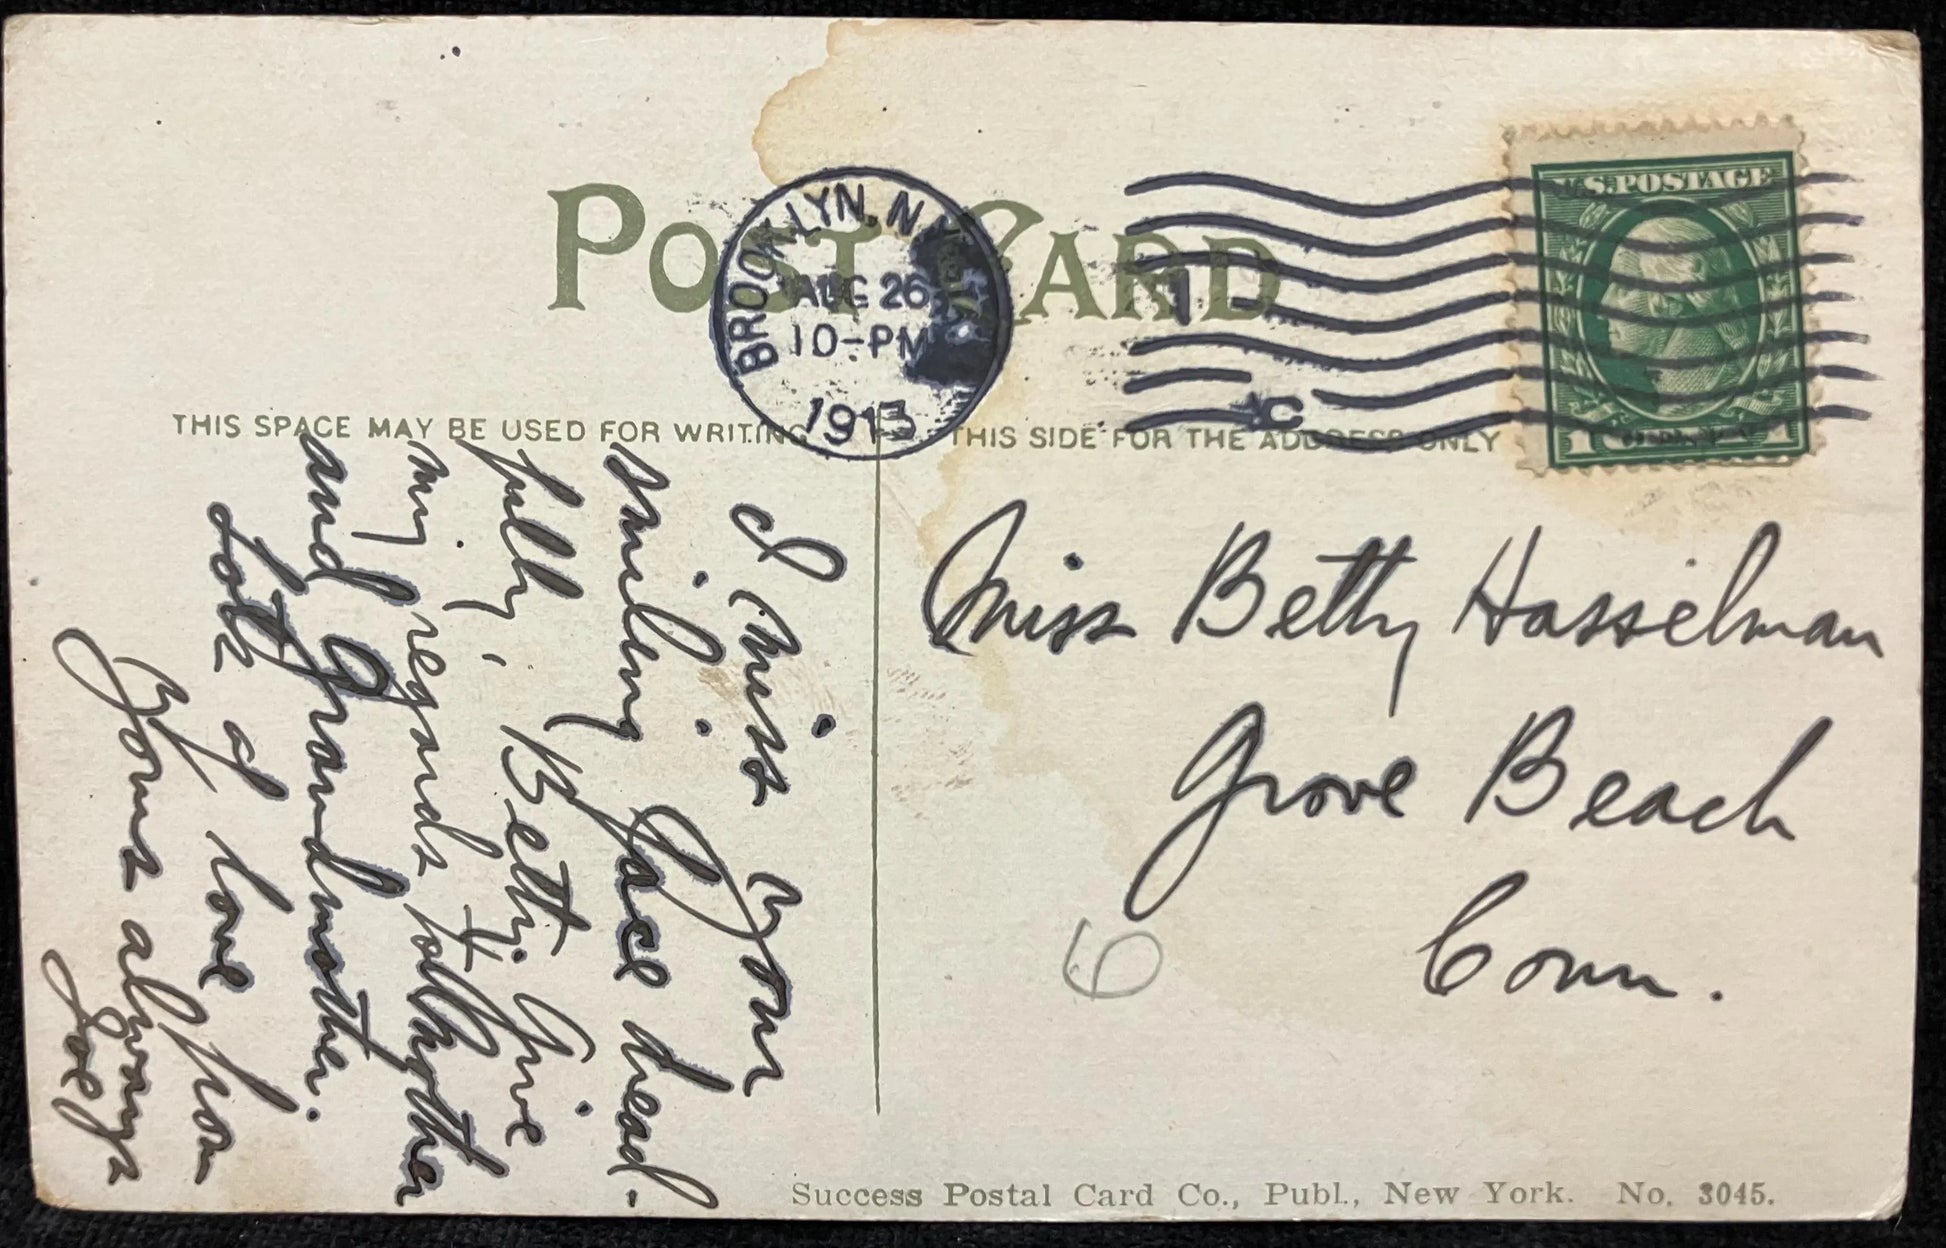 POST CARD
BROOKLYN, N.Y.
AUG 26
10-PM
1913
1
C
U.S. POSTAGE
1 1
THIS SPACE MAY BE USED FOR WRITING
THIS SIDE FOR THE ADDRESS ONLY
I miss your
smiling face dread-
fully, Betty. Give
my regards to Mother
and Grandmother.
Lots of love from
Yours always
Joe
Miss Betty Hasselman
Grove Beach
Conn.
6
Success Postal Card Co., Publ., New York. No. 3045.